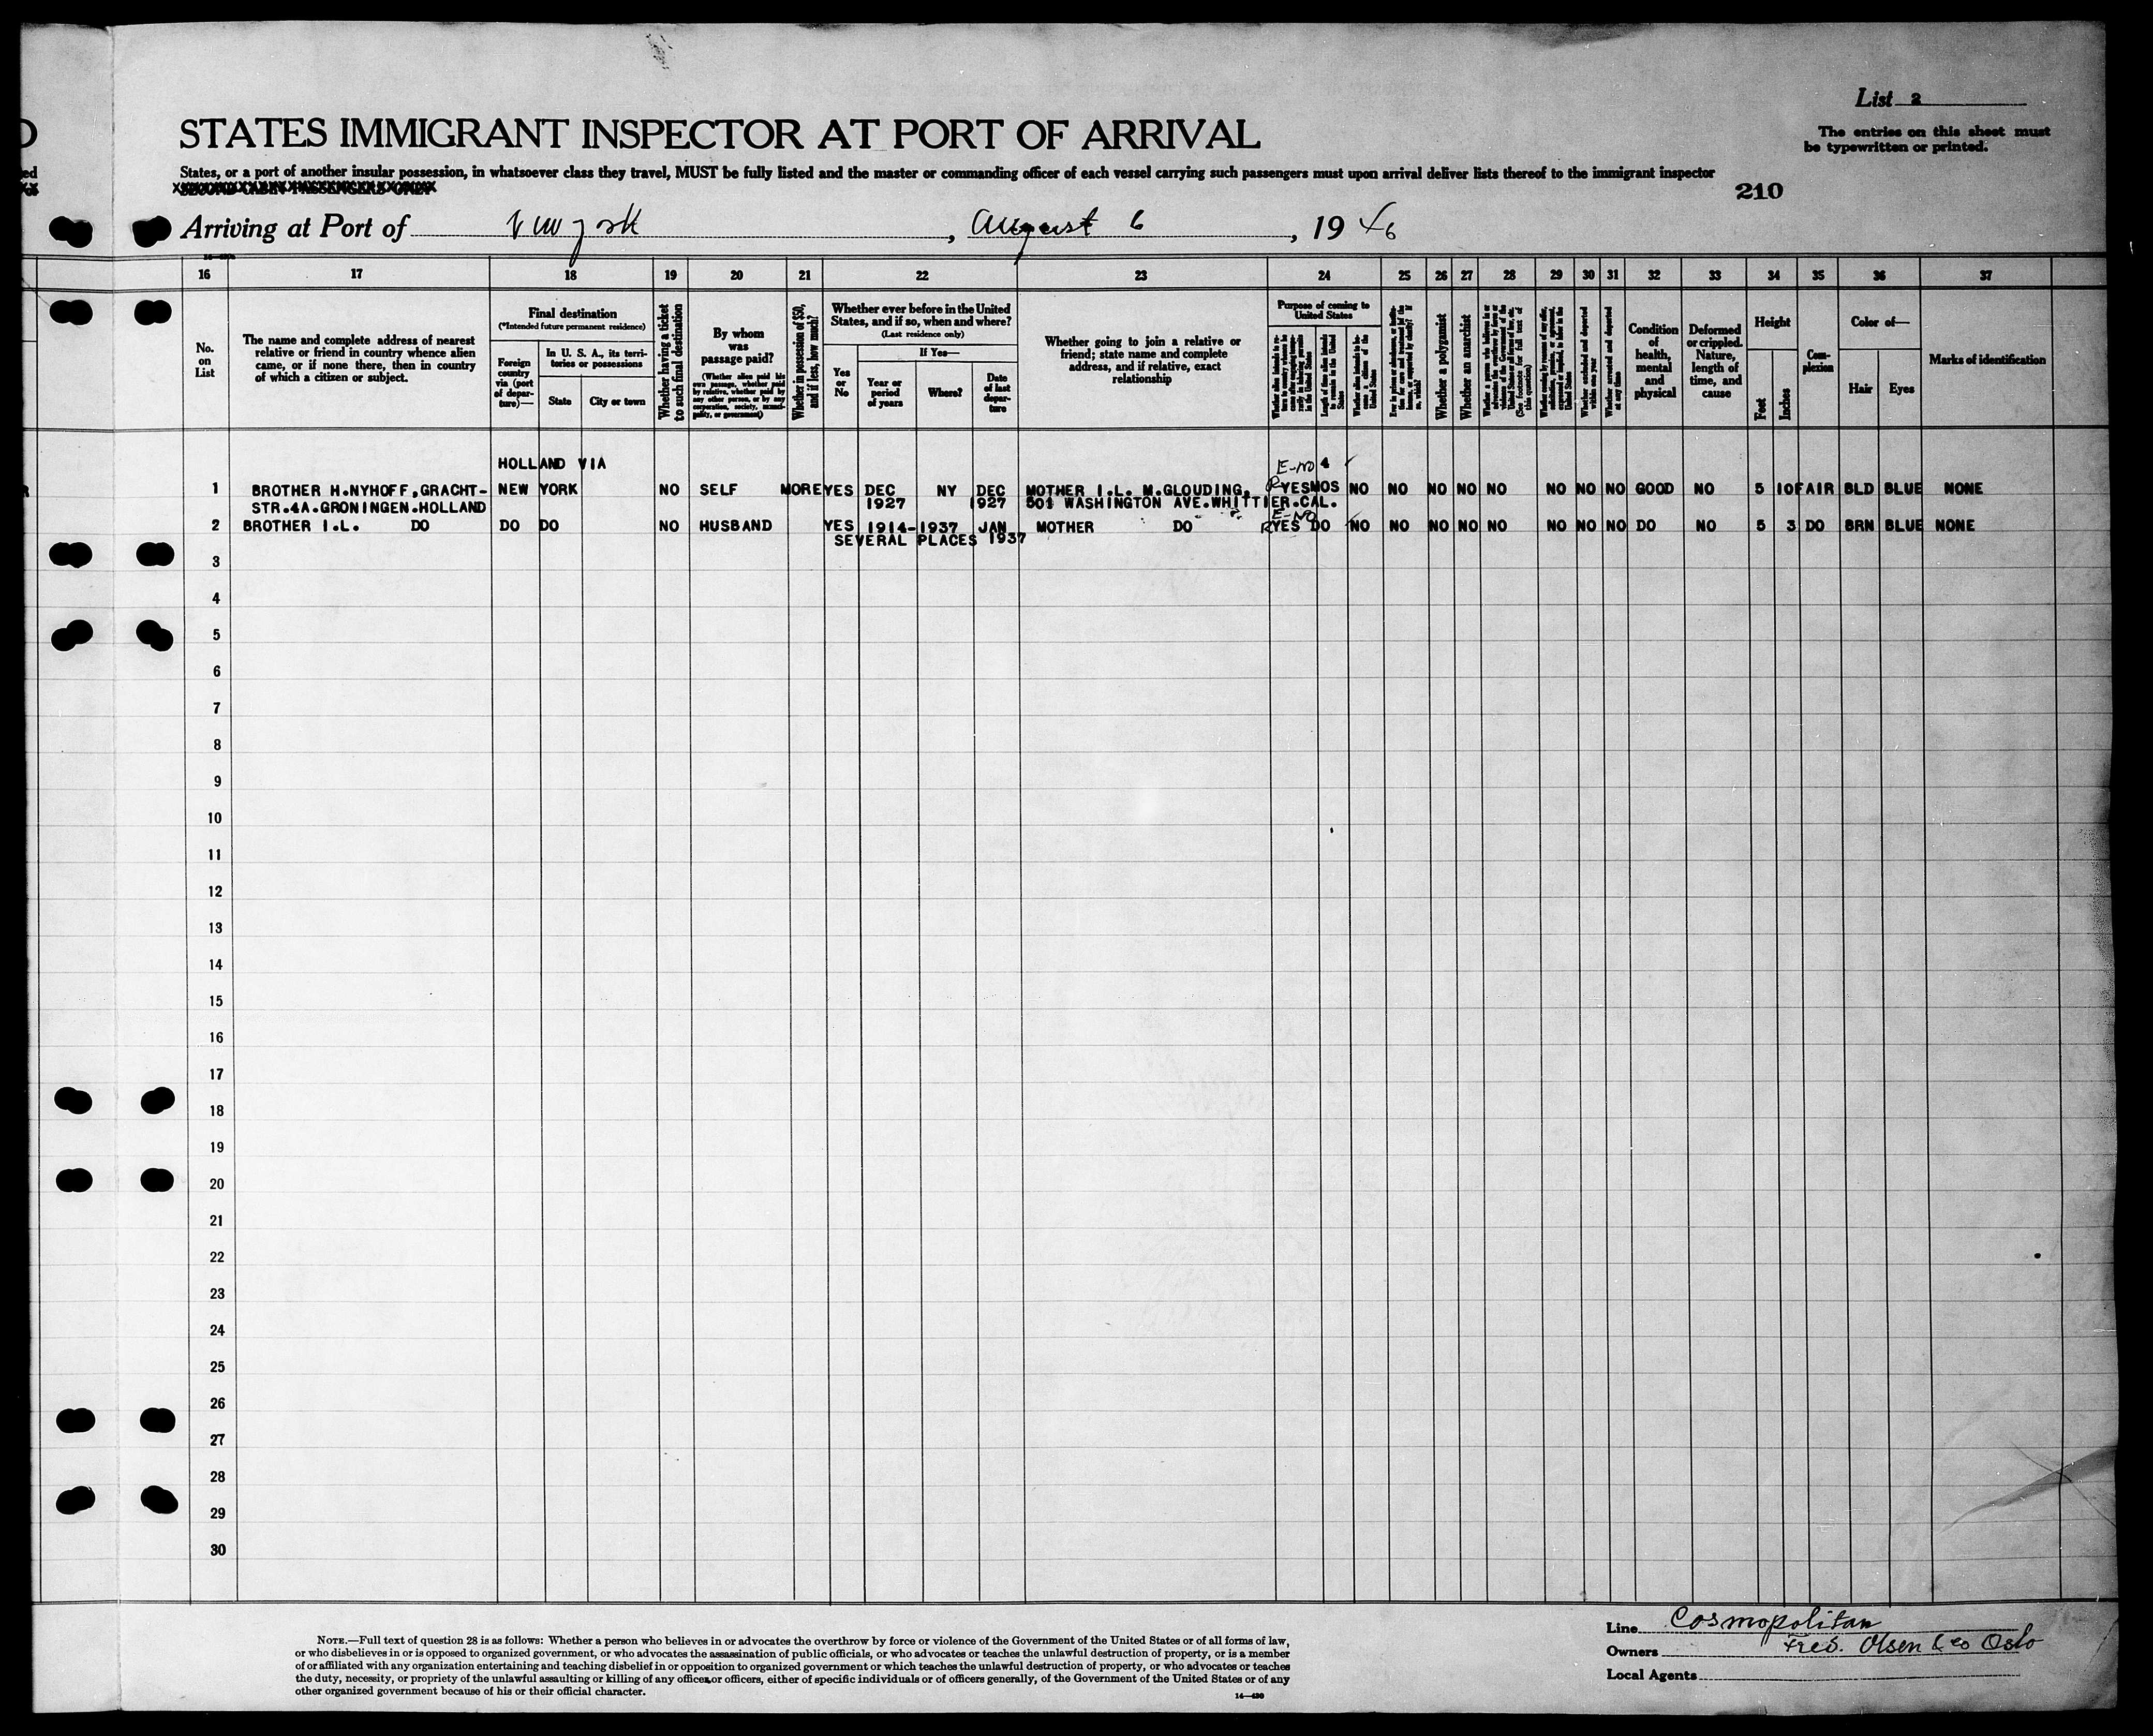 List 2
STATES IMMIGRANT INSPECTOR AT PORT OF ARRIVAL
The entries on this sheet must
be typewritten or printed.
States, or a port of another insular possession, in whatsoever class they travel, MUST be fully listed and the master or commanding officer of each vessel carrying such passengers must upon arrival deliver lists thereof to the immigrant inspector
210
Arriving at Port of New york, August 6, 19 46
16 17 18 19 20 21 22 23 24 25 26 27 28 29 30 31 32 33 34 35 36 37
No. on List
The name and complete address of nearest relative or friend in country whence alien came, or if none there, then in country of which a citizen or subject.
Final destination
(*Intended future permanent residence)
Foreign country via (port of departure)—
In U. S. A., its territories or possessions
State
City or town
Whether having a ticket to such final destination
By whom was passage paid?
(Whether alien paid his own passage, whether paid by relative, whether paid by any other person, or by any corporation, society, municipality, or government)
Whether in possession of $50, and if less, how much?
Whether ever before in the United States, and if so, when and where?
(Last residence only)
Yes or No
If Yes—
Year or period of years
Where?
Date of last departure
Whether going to join a relative or friend; state name and complete address, and if relative, exact relationship
Purpose of coming to United States
Length of time alien intends to remain in the United States
Whether alien intends to become a citizen of the United States
Whether a polygamist
Whether an anarchist
Whether arrested and deported at any time
Condition of health, mental and physical
Deformed or crippled. Nature, length of time, and cause
Height
Feet
Inches
Complexion
Color of—
Hair
Eyes
Marks of identification
HOLLAND VIA E-NO 4
1 BROTHER H.NYHOFF,GRACHT- NEW YORK NO SELF MORE YES DEC NY DEC MOTHER I.L. M.GLOUDING, R YES MOS NO NO NO NO NO NO NO NO GOOD NO 5 10 FAIR BLD BLUE NONE
STR.4A.GRONINGEN.HOLLAND 1927 1927 501 WASHINGTON AVE.WHITTIER.CAL.
E-NO
2 BROTHER I.L. DO DO DO NO HUSBAND YES 1914-1937 JAN MOTHER DO R YES DO NO NO NO NO NO NO NO NO DO NO 5 3 DO BRN BLUE NONE
SEVERAL PLACES 1937
3
4
5
6
7
8
9
10
11
12
13
14
15
16
17
18
19
20
21
22
23
24
25
26
27
28
29
30
Line Cosmopolitan
Owners Fred. Olsen & Co Oslo
Local Agents
NOTE.—Full text of question 28 is as follows: Whether a person who believes in or advocates the overthrow by force or violence of the Government of the United States or of all forms of law,
or who disbelieves in or is opposed to organized government, or who advocates the assassination of public officials, or who advocates or teaches the unlawful destruction of property, or is a member
of or affiliated with any organization entertaining and teaching disbelief in or opposition to organized government or which teaches the unlawful destruction of property, or who advocates or teaches
the duty, necessity, or propriety of the unlawful assaulting or killing of any officer or officers, either of specific individuals or of officers generally, of the Government of the United States or of any
other organized government because of his or their official character.
14—430